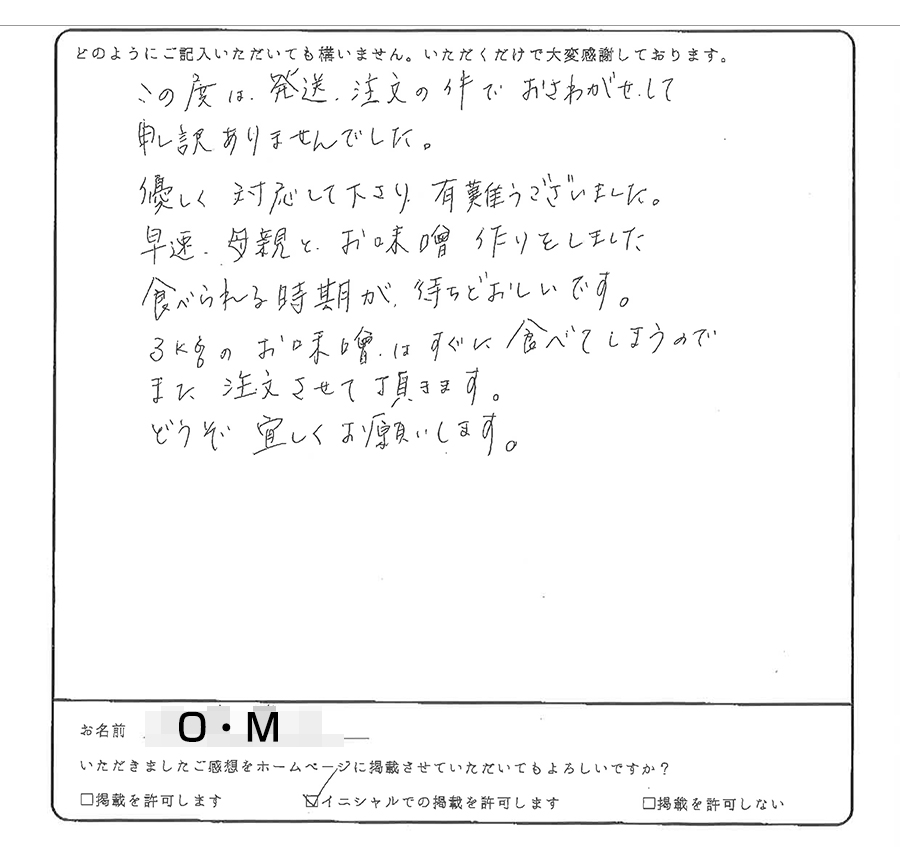 どのようにご記入いただいても構いません。いただくだけで大変感謝しております。
この度は、発送、注文の件で おさわがせして
申し訳ありませんでした。
優しく 対応して下さり 有難うございました。
早速、母親と、お味噌 作りをしました
食べられる時期が、待ちどおしいです。
3Kgのお味噌はすぐに食べてしまうので
また 注文させて頂きます。
どうぞ 宜しくお願いします。
お名前 O・M
いただきましたご感想をホームページに掲載させていただいてもよろしいですか？
□掲載を許可します ☑イニシャルでの掲載を許可します □掲載を許可しない